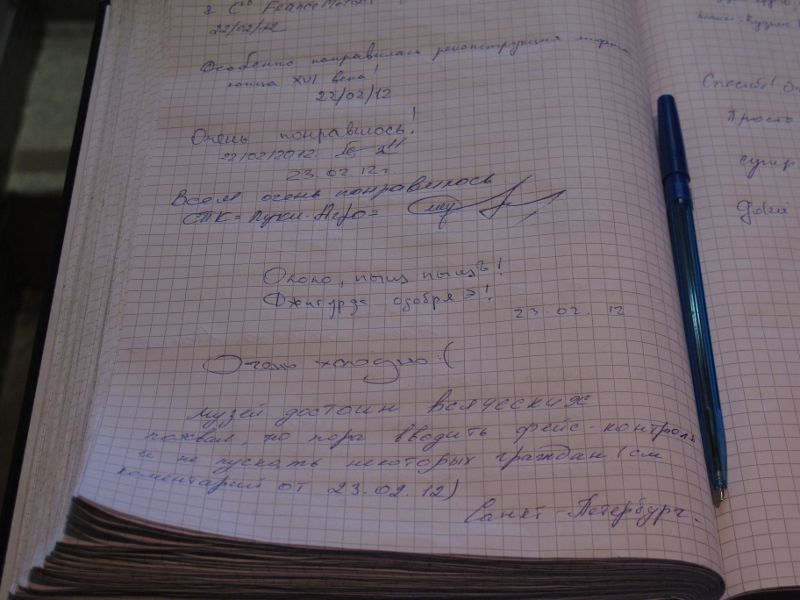 22/02/12
Особенно понравилась реконструкция лифта
конца XVI века!
22/02/12
Очень понравилось!
22/02/2012
23.02.12г
Всем очень понравилось
СТК=Луки-Аеро=
Ококо, пыщ пыщъ!
Джигурда одобряэ!
23.02.12
Очень холодно :(
Музей достоин всяческих
похвал, но пора вводить фейс-контроль
и не пускать некоторых граждан (см
коментарий от 23.02.12)
Санкт-Петербург.
Спасибо!
Просто
супер